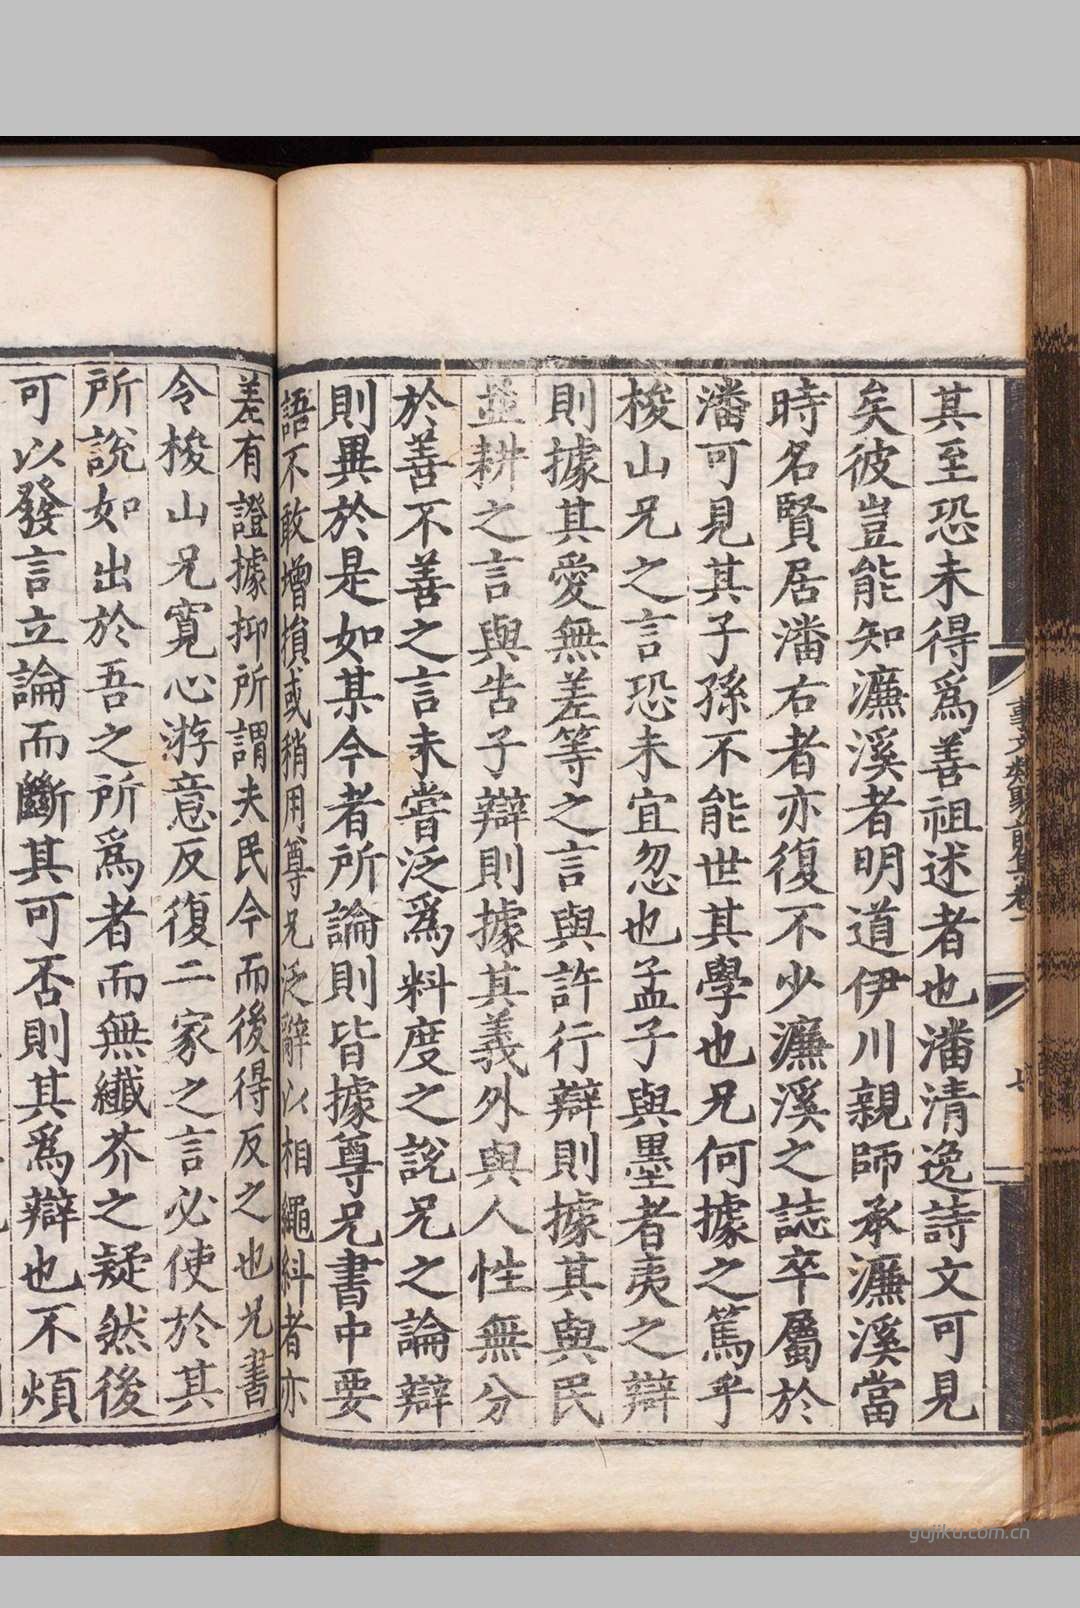 其至恐未得爲善祖述者也潘清逸詩文可見
矣彼豈能知濂溪者明道伊川親師承濂溪當
時名賢居潘右者亦復不少濂溪之誌卒屬於
潘可見其子孫不能世其學也兄何據之篤乎
梭山兄之言恐未宜忽也孟子與墨者夷之辯
則據其愛無差等之言與許行辯則據其與民
並耕之言與告子辯則據其義外與人性無分
於善不善之言未嘗泛爲料度之說兄之論辯
則異於是如某今者所論則皆據尊兄書中要
語不敢增損或稍用尊兄泛辭以相繩糾者亦
差有證據抑所謂夫民今而後得反之也兄書
令梭山兄寛心游意反復二家之言必使於其
所說如出於吾之所爲者而無纖芥之疑然後
可以發言立論而斷其可否則其爲辯也不煩
事文類聚前集卷一
gujiku.com.cn